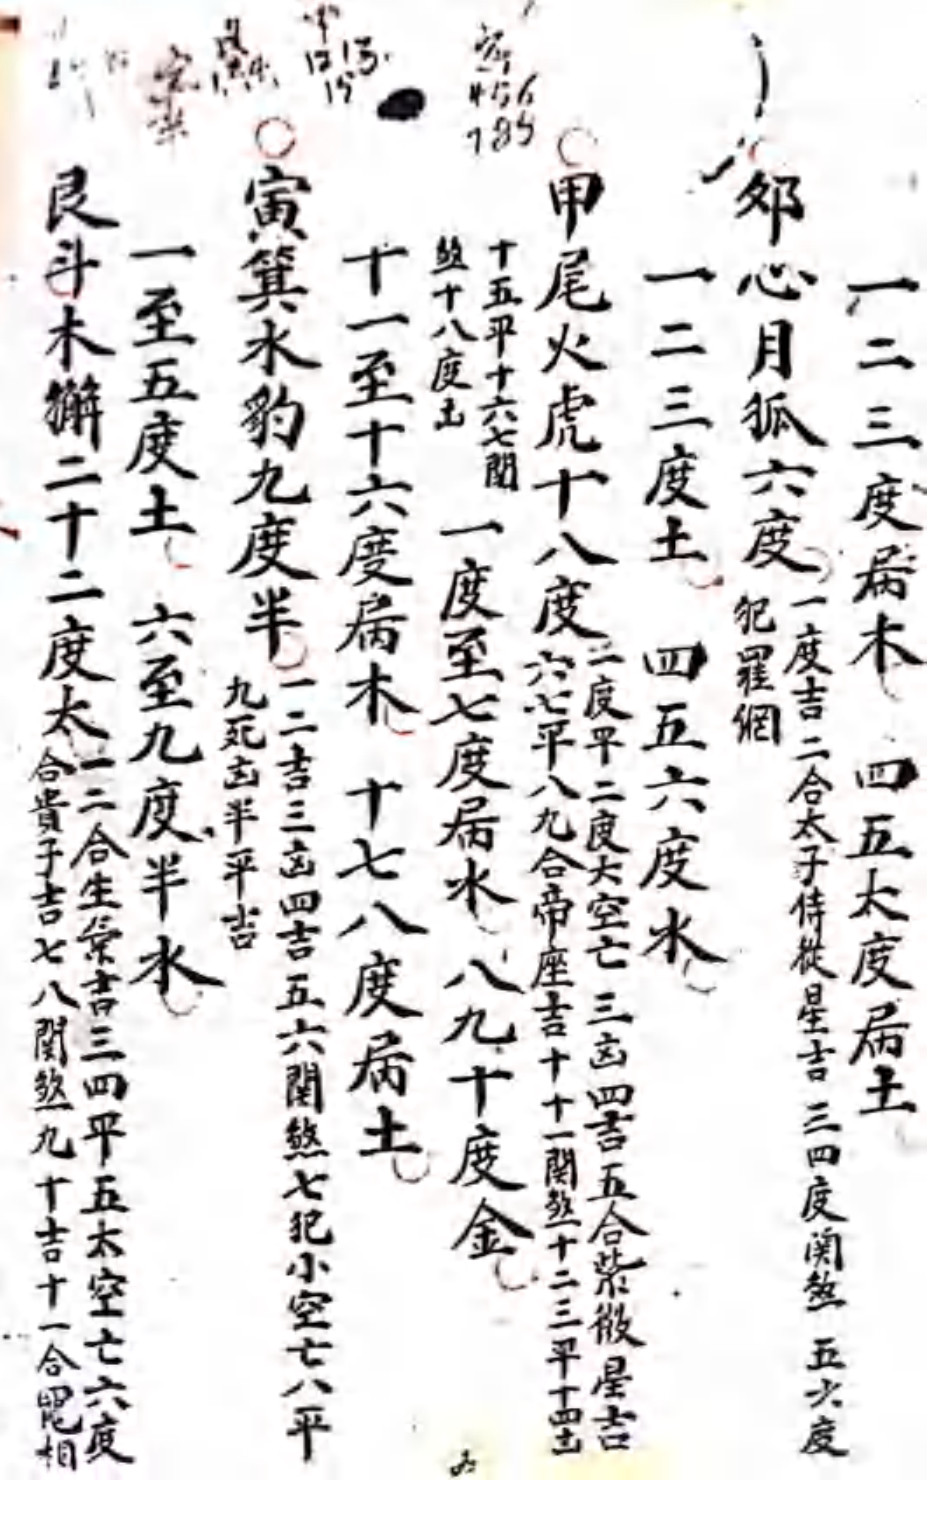 一二三度屬木 四五六度屬土
夘心月狐六度
一度吉二合太子侍從星吉三四度関煞五六度
犯羅網
一二三度土 四五六度水
甲尾火虎十八度
二度平二度大空亡三凶四吉五合紫微星吉
六七平八九合帝座吉十十一関煞十二三平十四吉
十五平十六七関
煞十八度吉
一度至七度屬水 八九十度金
十一至十六度屬木 十七八度屬土
寅箕水豹九度半
一二吉三凶四吉五六関煞七犯小空亡八平
九死凶半平吉
一至五度土 六至九度半水
艮斗木獬二十二度太
一二合生氣吉三四平五太空亡六度
合貴子吉七八関煞九十吉十一合相